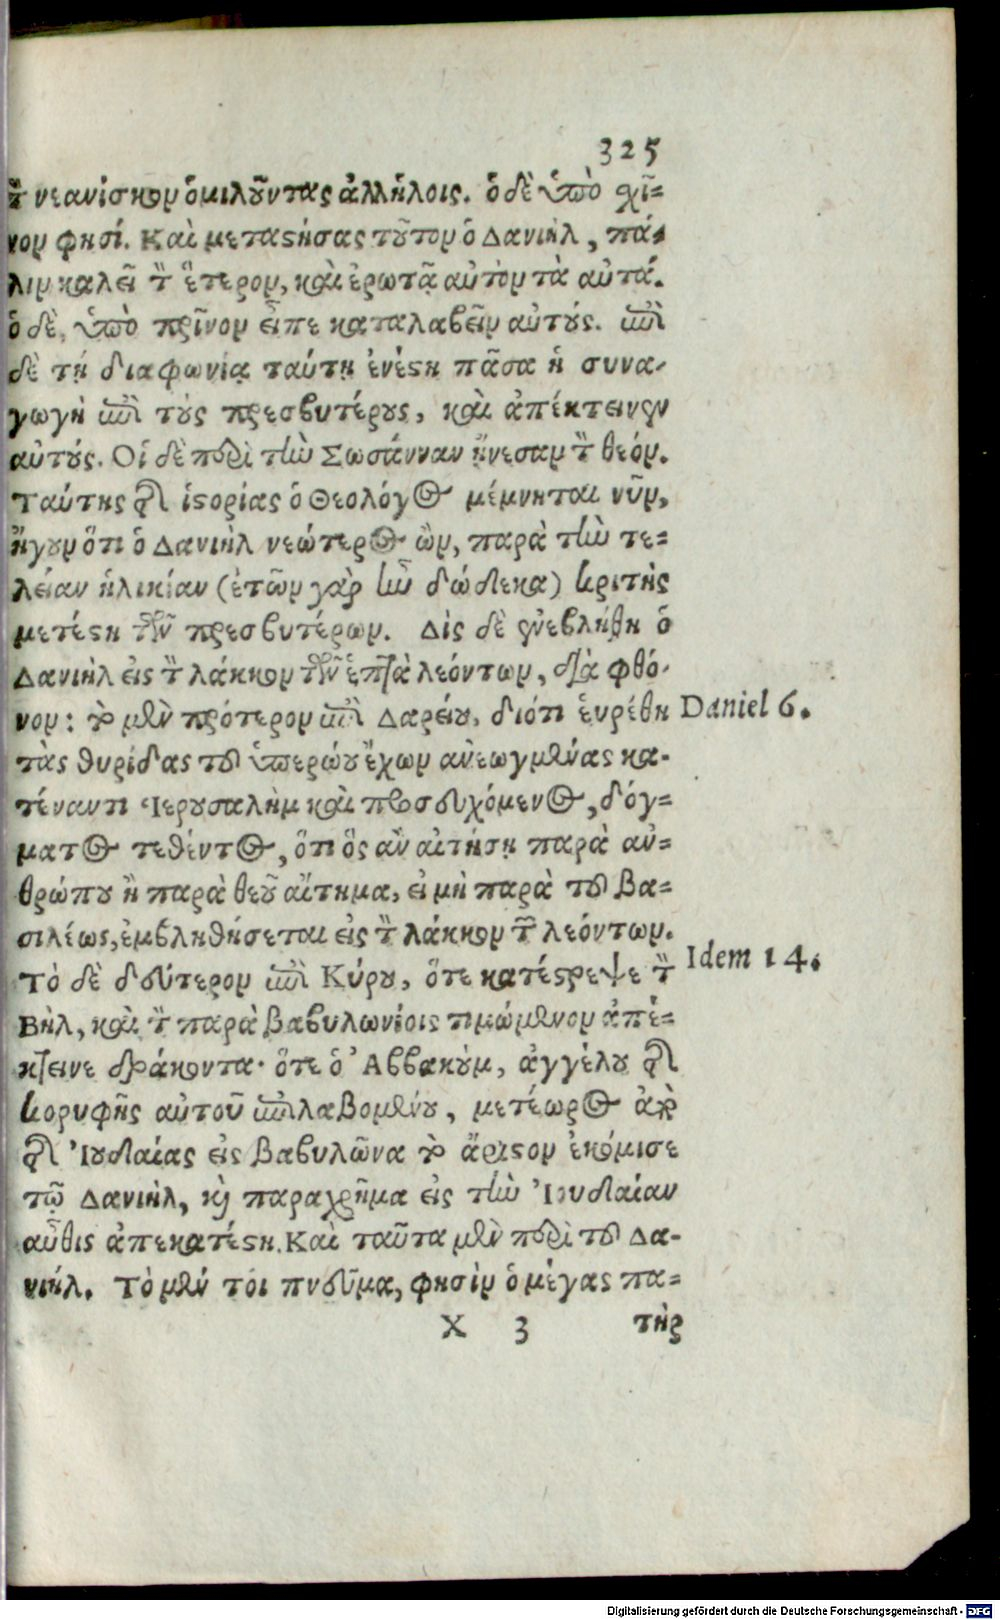 325
τ̀ νεανίσκον ὁμιλοῦντας ἀλλήλοις. ὁ δὲ ὑπὸ χῖ=
νον φησί. Καὶ μεταστήσας τοῦτον ὁ Δανιὴλ, πά=
λιν καλεῖ τ̀ ἕτερον, καὶ ἐρωτᾷ αὐτὸν τὰ αὐτά.
ὁ δὲ, ὑπὸ πρῖνον εἶπε καταλαβεῖν αὐτούς. ἐπὶ
δὲ τῇ διαφωνίᾳ ταύτῃ ἐνέστη πᾶσα ἡ συνα-
γωγὴ ἐπὶ τοὺς πρεσβυτέρους, καὶ ἀπέκτεινον
αὐτούς. Οἱ δὲ περὶ τὴν Σωσάνναν ᾔνεσαν τ̀ θεόν.
Ταύτης τῆς ἱστορίας ὁ Θεολόγος μέμνηται νῦν,
ἤγουν ὅτι ὁ Δανιὴλ νεώτερος ὢν, παρὰ τὴν τε=
λείαν ἡλικίαν (ἐτῶν γὰρ ἦν δώδεκα) κριτὴς
μετέστη τῶν πρεσβυτέρων. Δὶς δὲ ἐνεβλήθη ὁ
Δανιὴλ εἰς τ̀ λάκκον τῶν ἑπτὰ λεόντων, διὰ φθό-
νον: τὸ μὲν πρότερον ἐπὶ Δαρείου, διότι ἑυρέθη Daniel 6.
τὰς θυρίδας τοῦ ὑπερώου ἔχων ἀνεωγμένας κα-
τέναντι Ἱερουσαλὴμ καὶ προσευχόμενος, δόγ=
ματος τεθέντος, ὅτι ὃς ἂν αἰτήσῃ παρὰ ἀν=
θρώπου ἢ παρὰ θεοῦ αἴτημα, εἰ μὴ παρὰ τοῦ βα=
σιλέως, ἐμβληθήσεται εἰς τ̀ λάκκον τῶν λεόντων.
Τὸ δὲ δεύτερον ἐπὶ Κύρου, ὅτε κατέστρεψε τ̀ Idem 14.
Βὴλ, καὶ τ̀ παρὰ βαβυλωνίοις τιμώμενον ἀπέ=
κτεινε δράκοντα· ὅτε ὁ Ἀββακοὺμ, ἀγγέλου τῆς
κορυφῆς αὐτοῦ ἐπιλαβομένου, μετέωρος ἀπὸ
τῆς Ἰουδαίας εἰς βαβυλῶνα τὸ ἄριστον ἐκόμισε
τῷ Δανιὴλ, κὶ παραχρῆμα εἰς τὴν Ἰουδαίαν
αὖθις ἀπεκατέστη. Καὶ ταῦτα μὲν περὶ τοῦ Δα-
νιήλ. Τὸ μέν τοι πνεῦμα, φησὶν ὁ μέγας πα=
X 3 τὴρ
Digitalisierung gefördert durch die Deutsche Forschungsgemeinschaft - DFG